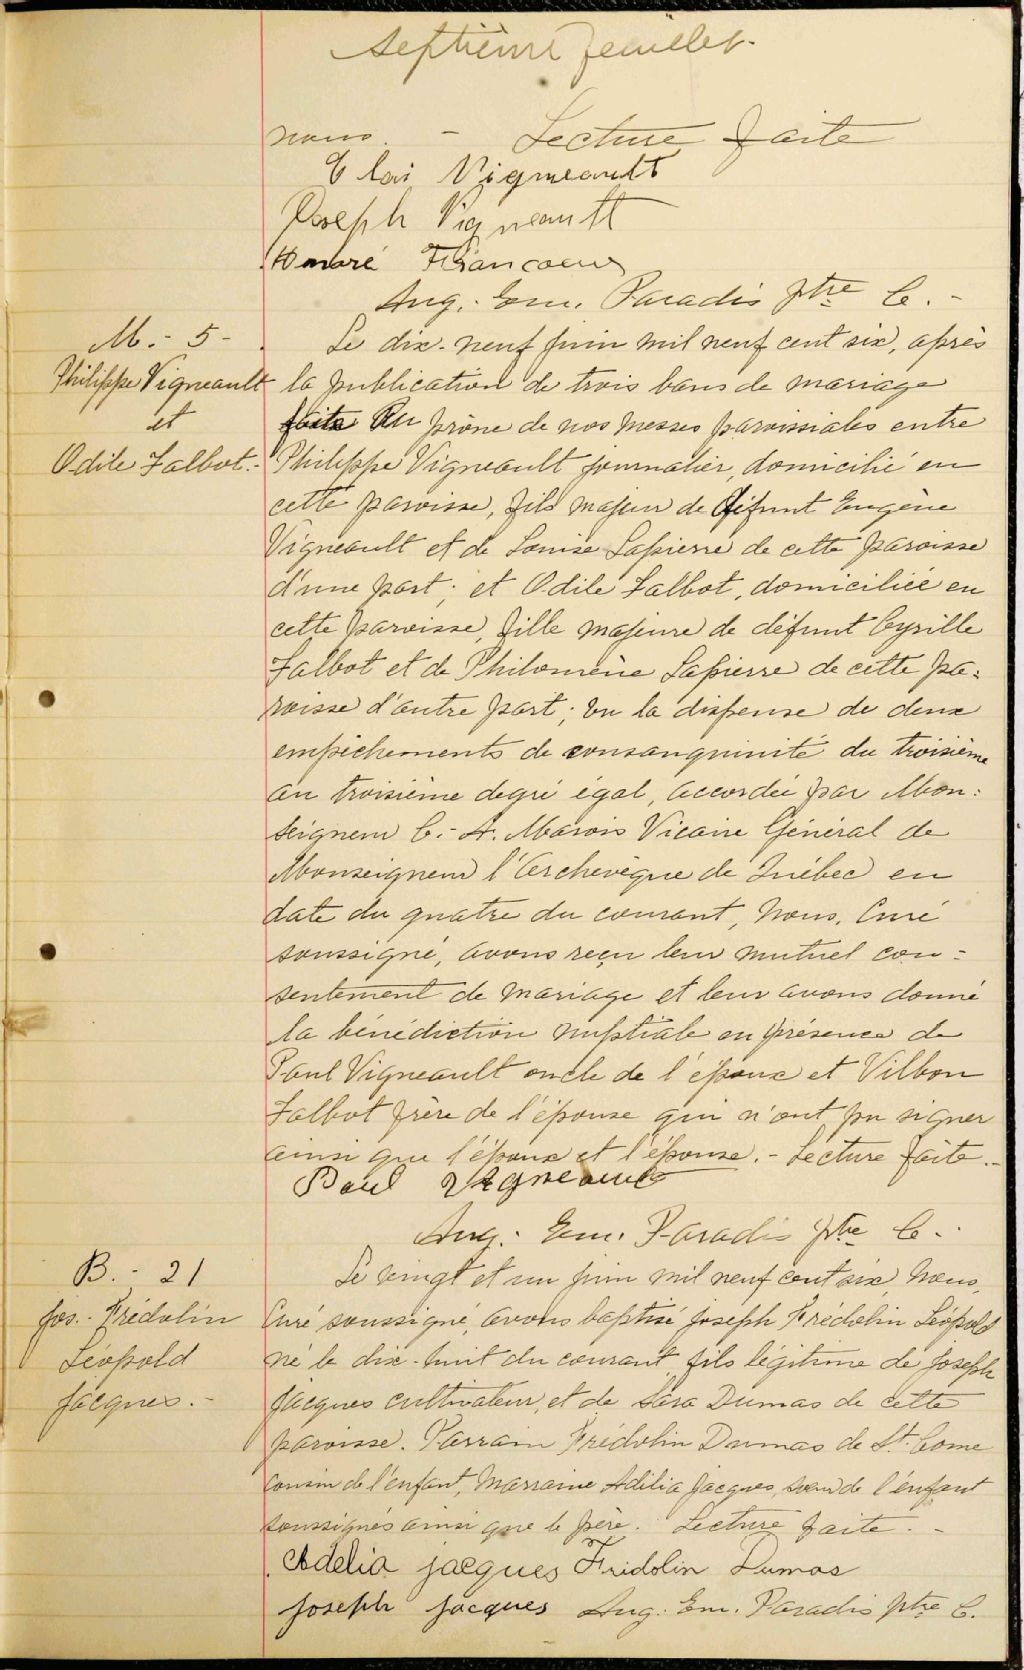 Septième feuillet.
nous. - Lecture faite
Elai Vigneault
Joseph Vigneault
Honoré Francoeur
Aug. Em. Paradis Ptre C. -
M. - 5 -
Philippe Vigneault
et
Odile Talbot. -
Le dix-neuf juin mil neuf cent six, après
la publication de trois bans de mariage
faite au prône de nos messes paroissiales entre
Philippe Vigneault journalier, domicilié en
cette paroisse, fils majeur de défunt Eugène
Vigneault et de Louise Lapierre de cette paroisse
d'une part; et Odile Talbot, domiciliée en
cette paroisse, fille majeure de défunt Cyrille
Talbot et de Philomène Lapierre de cette pa=
roisse d'autre part; vu la dispense de deux
empêchements de consanguinité du troisième
au troisième degré égal, accordée par Mon=
seigneur C.-A. Marois Vicaire Général de
Monseigneur l'Archevêque de Québec en
date du quatre du courant, Nous, Curé
soussigné, avons reçu leur mutuel con=
sentement de mariage et leur avons donné
la bénédiction nuptiale en présence de
Paul Vigneault oncle de l'époux et Vilbon
Talbot frère de l'épouse qui n'ont pu signer
ainsi que l'époux et l'épouse. - Lecture faite. -
Paul Vigneault
Aug. Em. Paradis Ptre C. -
B. - 21
Jos. - Frédolin
Léopold
Jacques. -
Le vingt et un juin mil neuf cent six, Nous,
Curé soussigné, avons baptisé Joseph Frédolin Léopold
né le dix-huit du courant, fils légitime de Joseph
Jacques cultivateur, et de Sara Dumas de cette
paroisse. Parrain Frédolin Dumas de St. Come
cousin de l'enfant, Marraine Adélia Jacques, soeur de l'enfant
soussignés ainsi que le père. Lecture faite. -
Adelia jacques Fridolin Dumas
Joseph Jacques Aug. Em. Paradis Ptre C.